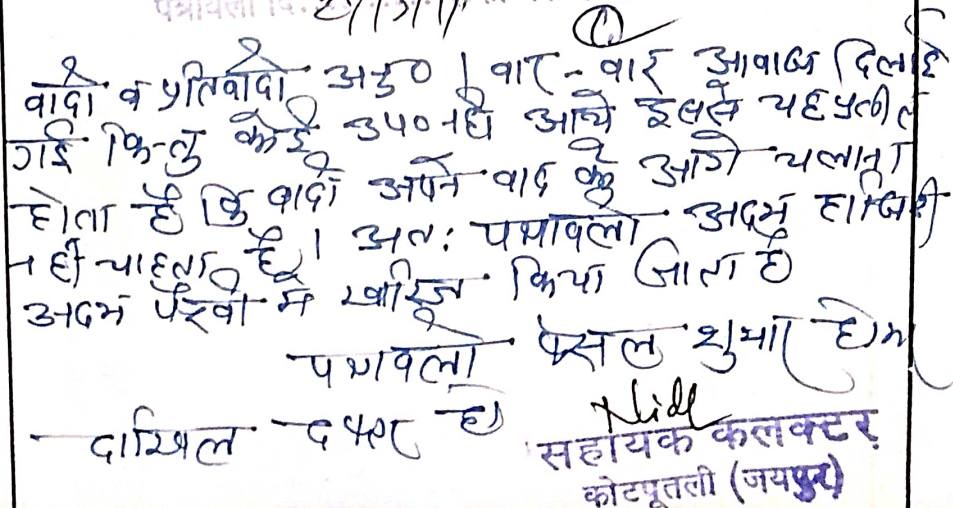 वादी व प्रतिवादी अनु० । बार-बार आवाज दिलाई
गई किन्तु कोई उप० नही आये इससे यह प्रतीत
होता है कि वादी अपने वाद को आगे चलाना
नही चाहता है। अतः पत्रावली अदम हाजिरी
अदम पैरवी में खारिज किया जाता है
पत्रावली फैसल शुमार होकर
दाखिल दफ्तर हो
सहायक कलक्टर
कोटपूतली (जयपुर)